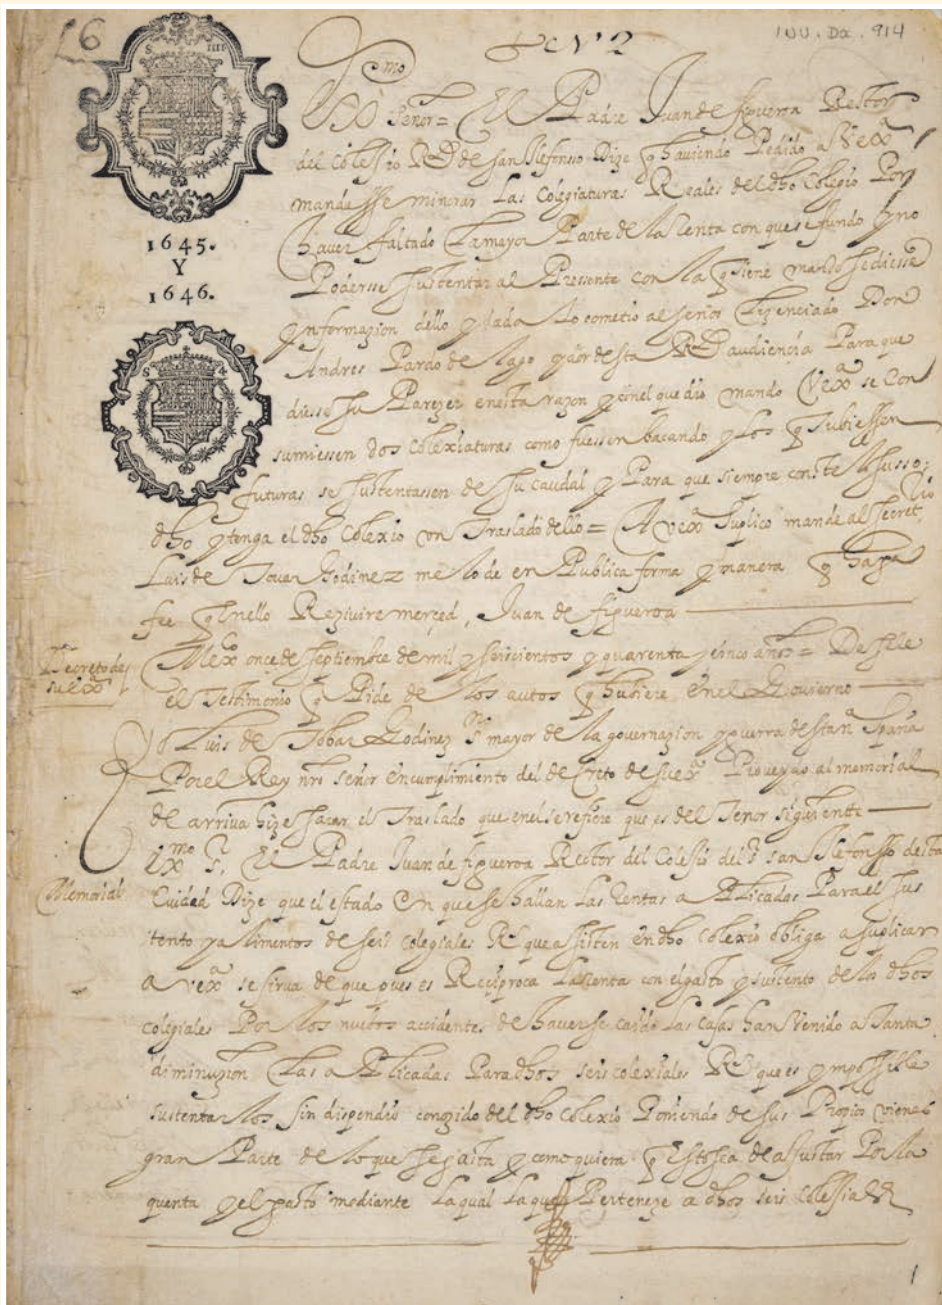 26
INV. Da. 914
Nº 2
S IIII
1645.
Y
1646.
S 4
Exmo
Señor = El Padre Juan de figueroa Rector
del Colessio Rl de san Ilefonso Dize q haviendo Pedido a Vexa
mandasse minorar Las Colegiaturas Reales del dho Colegio Por
haver faltado La mayor Parte de la Renta con que se fundo y no
Poderse sustentar al Pressente con la q tiene mando se diesse
ynformazion dello y dada lo cometio al señor Lizenciado Don
Andres Pardo de lago oydor desta Rl audiencia Para que
diesse su Parezer en esta razon y con el que dio mando Vexa se con
sumiessen dos Colexiaturas como fuessen bacando y Los q tubiessen
futuras se sustentassen de su caudal y Para que siempre conste lo susso
dho y tenga el dho Colexio un Traslado dello = A vexa Suplico mande al secretrio
Luis de Tovar Godinez me lo de en Publica forma y manera q haga
fee q en ello Rezivire merced, Juan de figueroa
Decreto de
su exa
Mexco once de septiembre de mil y seiscientos y quarenta y cinco años = Desele
el Testimonio q Pide de los autos q hubiere en el Govierno
Yo Luis de Tobar Godinez sno mayor de la governazion y guerra desta na España
Por el Rey nro señor en cumplimiento del decreto de su exa Proveydo al memorial
de arriva hize sacar el Traslado que en el se refiere que es del Tenor siguientte
Memorial
Exmo sr, El Padre Juan de figueroa Rector del Colesio del Rl san Ilefonsso desta
Ciudad Dize que el estado en que se hallan las Rentas aPlicadas Para el sus
tento y alimentos de seis colegiales Rs que assisten en dho colexio obliga a suplicar
a vexa se sirva de que pues es Reciproca la Renta con el gasto y sustento de los dhos
colegiales Por los nuebos accidentes de haverse caido las casas han Venido a Tanta
diminuzion Las aPlicadas Para dhos seis colexiales Rs que es ympossible
sustentarlos sin dispendio conozido del dho colexio Poniendo de sus Propios vienes
gran Parte de lo que se gasta y como quiera q Esto sea de ajustar Por la
quenta y el gasto mediante la qual la que Perteneze a dhos seis colessiales
1